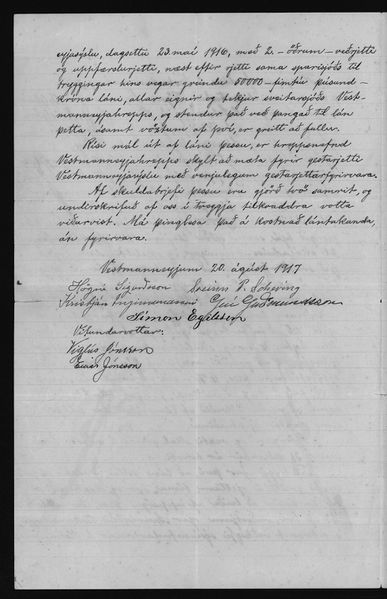 eyjasýslu, dagsettu 23. maí 1916, með 2. - öðrum - veðrjetti
og uppfærslurjetti, næst eftir rjetti sama sparisjóðs til
tryggingar hins vegar greindu 50000 - fimtíu þúsund -
króna láni, allar eignir og tekjur sveitarsjóðs Vest-
mannaeyjahrepps, og stendur það veð þangað til lán
þetta, ásamt vöxtum af því, er greitt að fullu.
Rísi mál út af láni þessu, er hreppsnefnd
Vestmannaeyjahrepps skylt að mæta fyrir gestarjetti
Vestmannaeyjasýslu með venjulegum gestarjettarfyrirvara.
Af skuldabrjefi þessu eru gjörð tvö samrit, og
undirskrifað af oss í tilkvaddra votta
viðurvist. Má þinglesa það á kostnað lántakanda,
án fyrirvara.
Vestmannaeyjum 20. ágúst 1917
Högni Sigurðsson Sveinn P. Scheving
Kristján Ingimundarson Guðmundsson
Símon Egilsson
Vitundarvottar:
Vigfús Jónsson
Einar Jónsson